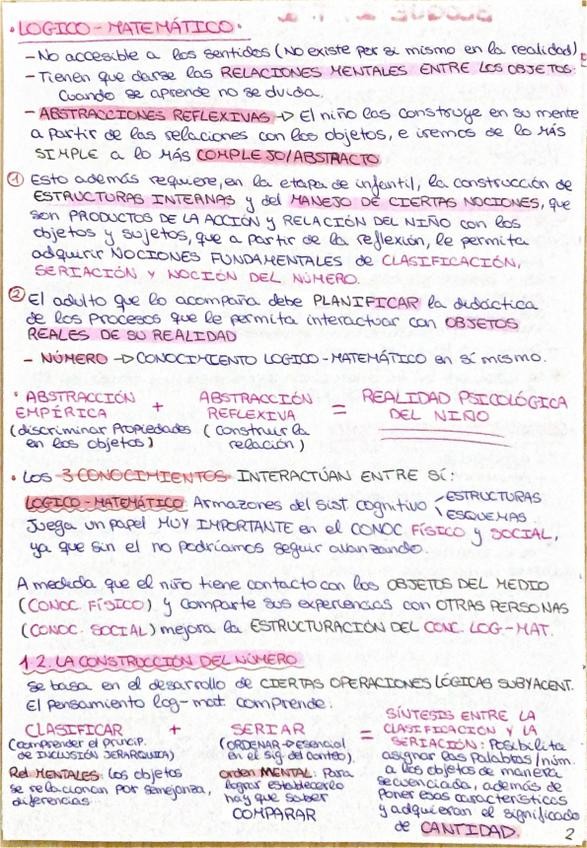 · LOGICO-MATEMÁTICO ·
- No accesible a los sentidos (No existe por si mismo en la realidad)
- Tienen que darse las RELACIONES MENTALES ENTRE LOS OBJETOS.
Cuando se aprende no se olvida.
- ABSTRACCIONES REFLEXIVAS -> El niño las construye en su mente
a partir de las relaciones con los objetos, e iremos de lo MÁS
SIMPLE a lo MÁS COMPLEJO/ABSTRACTO
① Esto además requiere, en la etapa de infantil, la construcción de
ESTRUCTURAS INTERNAS y del MANEJO DE CIERTAS NOCIONES, que
son PRODUCTOS DE LA ACCIÓN y RELACIÓN DEL NIÑO con los
objetos y sujetos, que a partir de la reflexión, le permita
adquirir NOCIONES FUNDAMENTALES de CLASIFICACIÓN,
SERIACIÓN y NOCIÓN DEL NÚMERO.
② El adulto que lo acompaña debe PLANIFICAR la didáctica
de los procesos que le permita interactuar con OBJETOS
REALES DE SU REALIDAD
- NÚMERO -> CONOCIMIENTO LOGICO-MATEMÁTICO en sí mismo.
· ABSTRACCIÓN + ABSTRACCIÓN = REALIDAD PSICOLÓGICA
EMPÍRICA REFLEXIVA DEL NIÑO
(discriminar Propiedades (construir la
en los objetos) relación)
· LOS 3 CONOCIMIENTOS INTERACTÚAN ENTRE SÍ:
LOGICO-MATEMÁTICO Armazones del sist. cognitivo ESTRUCTURAS
ESQUEMAS.
Juega un papel MUY IMPORTANTE en el CONOC FÍSICO y SOCIAL,
ya que sin el no podríamos seguir avanzando.
A medida que el niño tiene contacto con los OBJETOS DEL MEDIO
(CONOC. FÍSICO) y comparte sus experiencias con OTRAS PERSONAS
(CONOC. SOCIAL) mejora la ESTRUCTURACIÓN DEL CONC. LOG-MAT.
1.2. LA CONSTRUCCIÓN DEL NÚMERO
Se basa en el desarrollo de CIERTAS OPERACIONES LÓGICAS SUBYACENT.
El pensamiento log-mat comprende:
CLASIFICAR + SERIAR = SÍNTESIS ENTRE LA
(comprender el princip. (ORDENAR -> esencial CLASIFICACIÓN Y LA
de INCLUSIÓN JERARQUIA) en el sig. del conteo). SERIACIÓN: Posibilita
Rel MENTALES: los objetos orden MENTAL: Para asignar las palabras/núm.
se relacionan por semejanza, lograr establecerlo a los objetos de manera
diferencias. hay que saber secuenciada, además de
COMPARAR poner esas características
y adquieran el significado
de CANTIDAD.
2